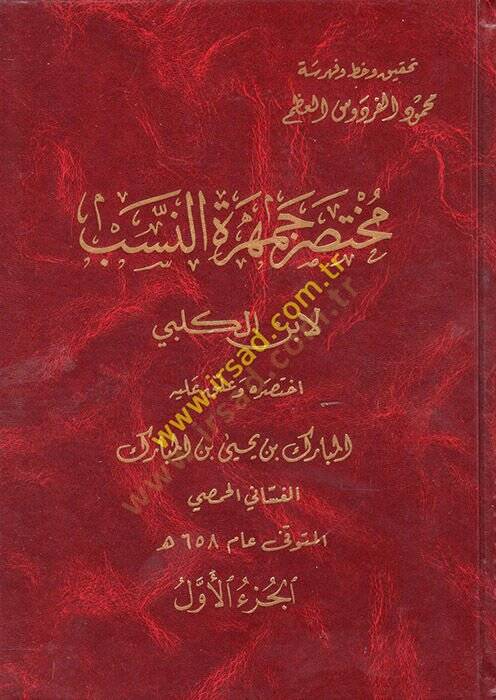 تحقيق وخط وفهرسة
محمود الفردوس العظم
مُختصر جَمهَرة النسَّب
لابن الكلبي
اختصره وعلق عليه
المبارك بن يحيى بن المبارك
الغسّاني الحمصي
المتوفى عام ٦٥٨ هـ
الجزءُ الأوّلُ
www.irsad.com.tr
www.irsad.com.tr